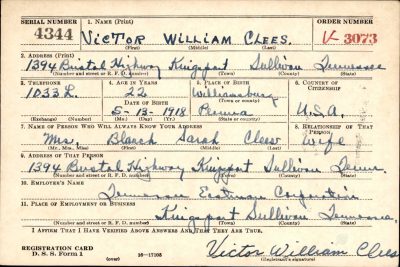 SERIAL NUMBER 1. NAME (Print) ORDER NUMBER
4344 VICTOR WILLIAM CLEES. V 3073
(First) (Middle) (Last)
2. ADDRESS (Print)
1394 Bristol Highway Kingsport Sullivan Tennessee
(Number and street or R. F. D. number) (Town) (County) (State)
3. TELEPHONE 4. AGE IN YEARS 5. PLACE OF BIRTH 6. COUNTRY OF CITIZENSHIP
1033 L. 22 Williamsburg
DATE OF BIRTH (Town or county)
5-13-1918 Penna U.S.A.
(Exchange) (Number) (Mo.) (Day) (Yr.) (State or country)
7. NAME OF PERSON WHO WILL ALWAYS KNOW YOUR ADDRESS 8. RELATIONSHIP OF THAT PERSON
Mrs. Blanch Sarah Clees Wife
(Mr., Mrs., Miss) (First) (Middle) (Last)
9. ADDRESS OF THAT PERSON
1394 Bristol Highway Kingsport Sullivan Tenn.
(Number and street or R. F. D. number) (Town) (County) (State)
10. EMPLOYER'S NAME
Tennessee Eastman Corporation
11. PLACE OF EMPLOYMENT OR BUSINESS
Kingsport Sullivan Tennessee.
(Number and street or R. F. D. number) (Town) (County) (State)
I AFFIRM THAT I HAVE VERIFIED ABOVE ANSWERS AND THAT THEY ARE TRUE.
REGISTRATION CARD
D. S. S. Form 1 (over) 16-17105 Victor William Clees
(Registrant's signature)